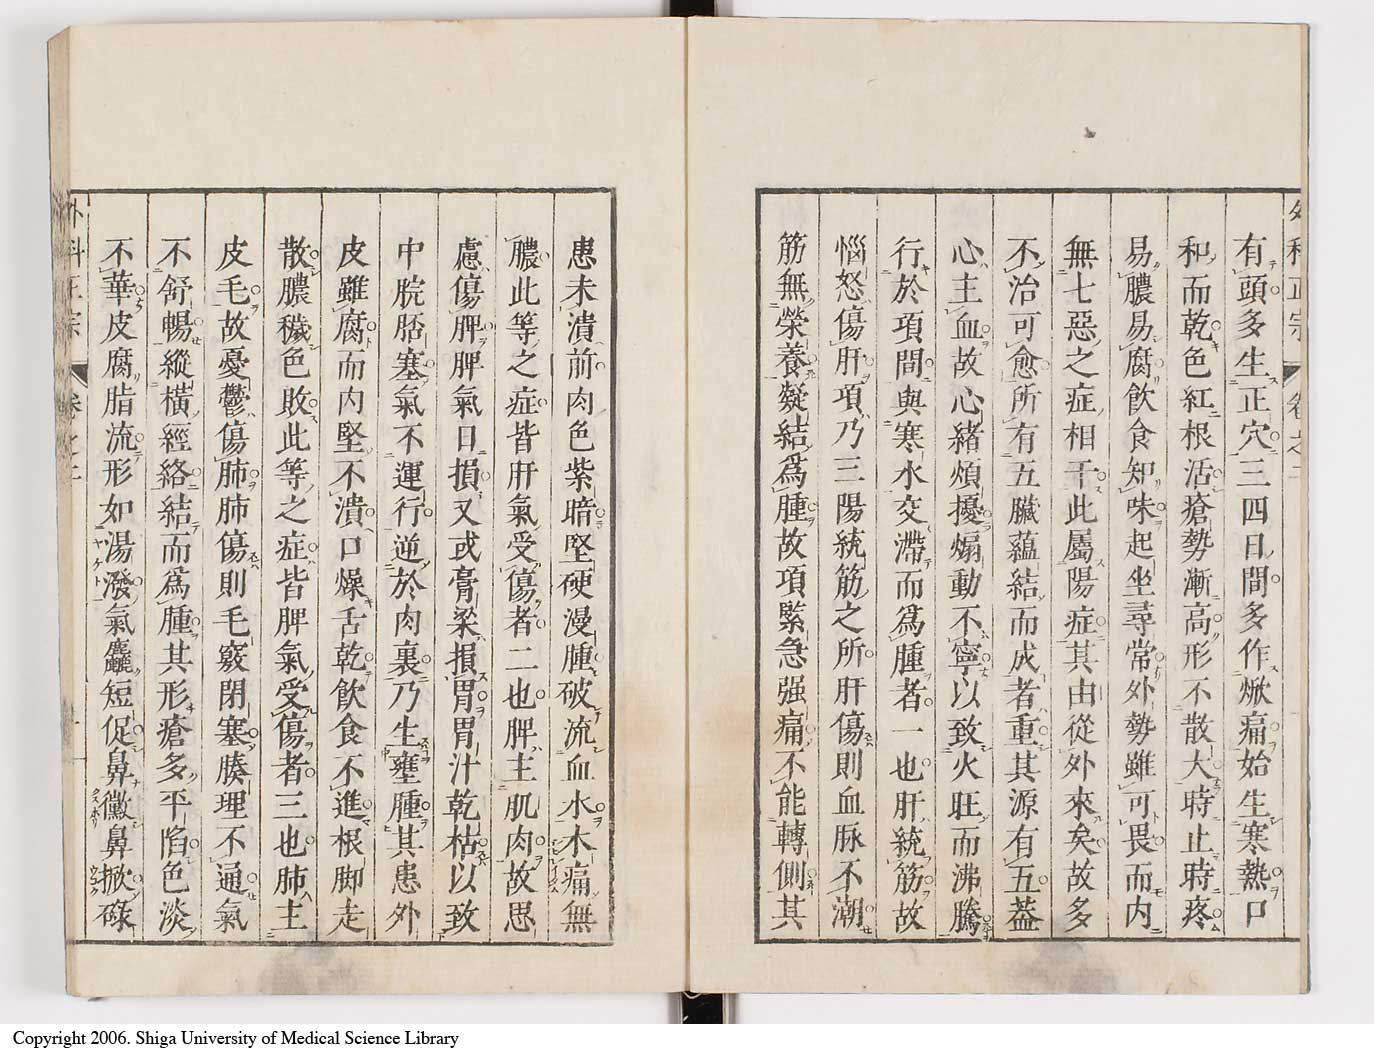 外科正宗 卷之二
有頭多生正穴三四日間多作焮痛始生寒熱口
和而乾色紅根活瘡勢漸高形不散大時止時疼
易膿易腐飲食知味起坐尋常外勢雖可畏而內
無七惡之症相干此屬陽症其由從外來矣故多
不治可愈所有五臟蘊結而成者重其源有五蓋
心主血故心緒煩擾煽動不寧以致火旺而沸騰
行於項間與寒水交滯而爲腫者一也肝統筋故
惱怒傷肝項乃三陽統筋之所肝傷則血脉不潮
筋無榮養凝結爲腫故項緊急强痛不能轉側其
患未潰前肉色紫暗堅硬漫腫破流血水木痛無
膿此等之症皆肝氣受傷者二也脾主肌肉故思
慮傷脾脾氣日損又或膏粱損胃胃汁乾枯以致
中脘痞塞氣不運行逆於肉裏乃生壅腫其患外
皮雖腐而内堅不潰口燥舌乾飲食不進根脚走
散膿穢色敗此等之症皆脾氣受傷者三也肺主
皮毛故憂鬱傷肺肺傷則毛竅閉塞腠理不通氣
不舒暢縱橫經絡結而爲腫其形瘡多平陷色淡
不華皮腐脂流形如湯潑氣麤短促鼻黴鼻掀碌
外科正宗 卷之二
Copyright 2006. Shiga University of Medical Science Library